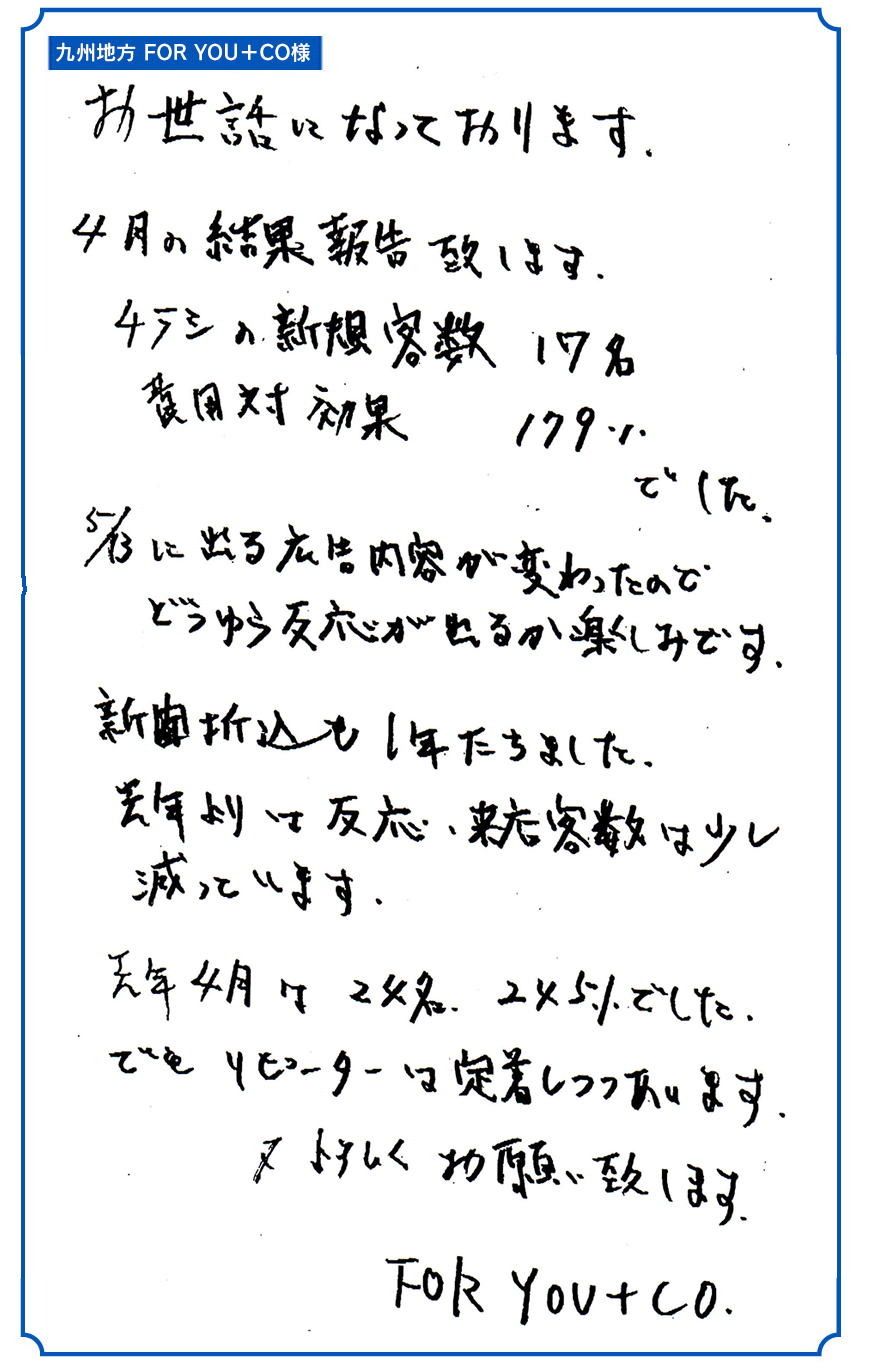 九州地方 FOR YOU+CO様
お世話になっております.
4月の結果報告致します.
チラシの新規客数 17名
費用対効果 179%
でした.
5/13に出る広告内容が変わったので
どうゆう反応が出るか楽しみです.
新聞折込も1年たちました.
去年よりは反応、来店客数は少し
減っています.
去年4月は24名. 245%でした.
でもリピーターは定着しつつあります.
又よろしくお願い致します.
FOR YOU+CO.